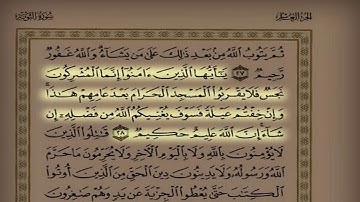 الجزء العاشر
سورة التوبة
ثُمَّ يَتُوبُ اللَّهُ مِنْ بَعْدِ ذَلِكَ عَلَى مَنْ يَشَاءُ وَاللَّهُ غَفُورٌ
رَحِيمٌ ٢٧ يَا أَيُّهَا الَّذِينَ ءَامَنُوا إِنَّمَا الْمُشْرِكُونَ
نَجَسٌ فَلَا يَقْرَبُوا الْمَسْجِدَ الْحَرَامَ بَعْدَ عَامِهِمْ هَذَا
وَإِنْ خِفْتُمْ عَيْلَةً فَسَوْفَ يُغْنِيكُمُ اللَّهُ مِنْ فَضْلِهِ إِنْ
شَاءَ إِنَّ اللَّهَ عَلِيمٌ حَكِيمٌ ٢٨ قَاتِلُوا الَّذِينَ
لَا يُؤْمِنُونَ بِاللَّهِ وَلَا بِالْيَوْمِ الْآخِرِ وَلَا يُحَرِّمُونَ مَا حَرَّمَ
اللَّهُ وَرَسُولُهُ وَلَا يَدِينُونَ دِينَ الْحَقِّ مِنَ الَّذِينَ أُوتُوا
الْكِتَابَ حَتَّى يُعْطُوا الْجِزْيَةَ عَنْ يَدٍ وَهُمْ صَاغِرُونَ